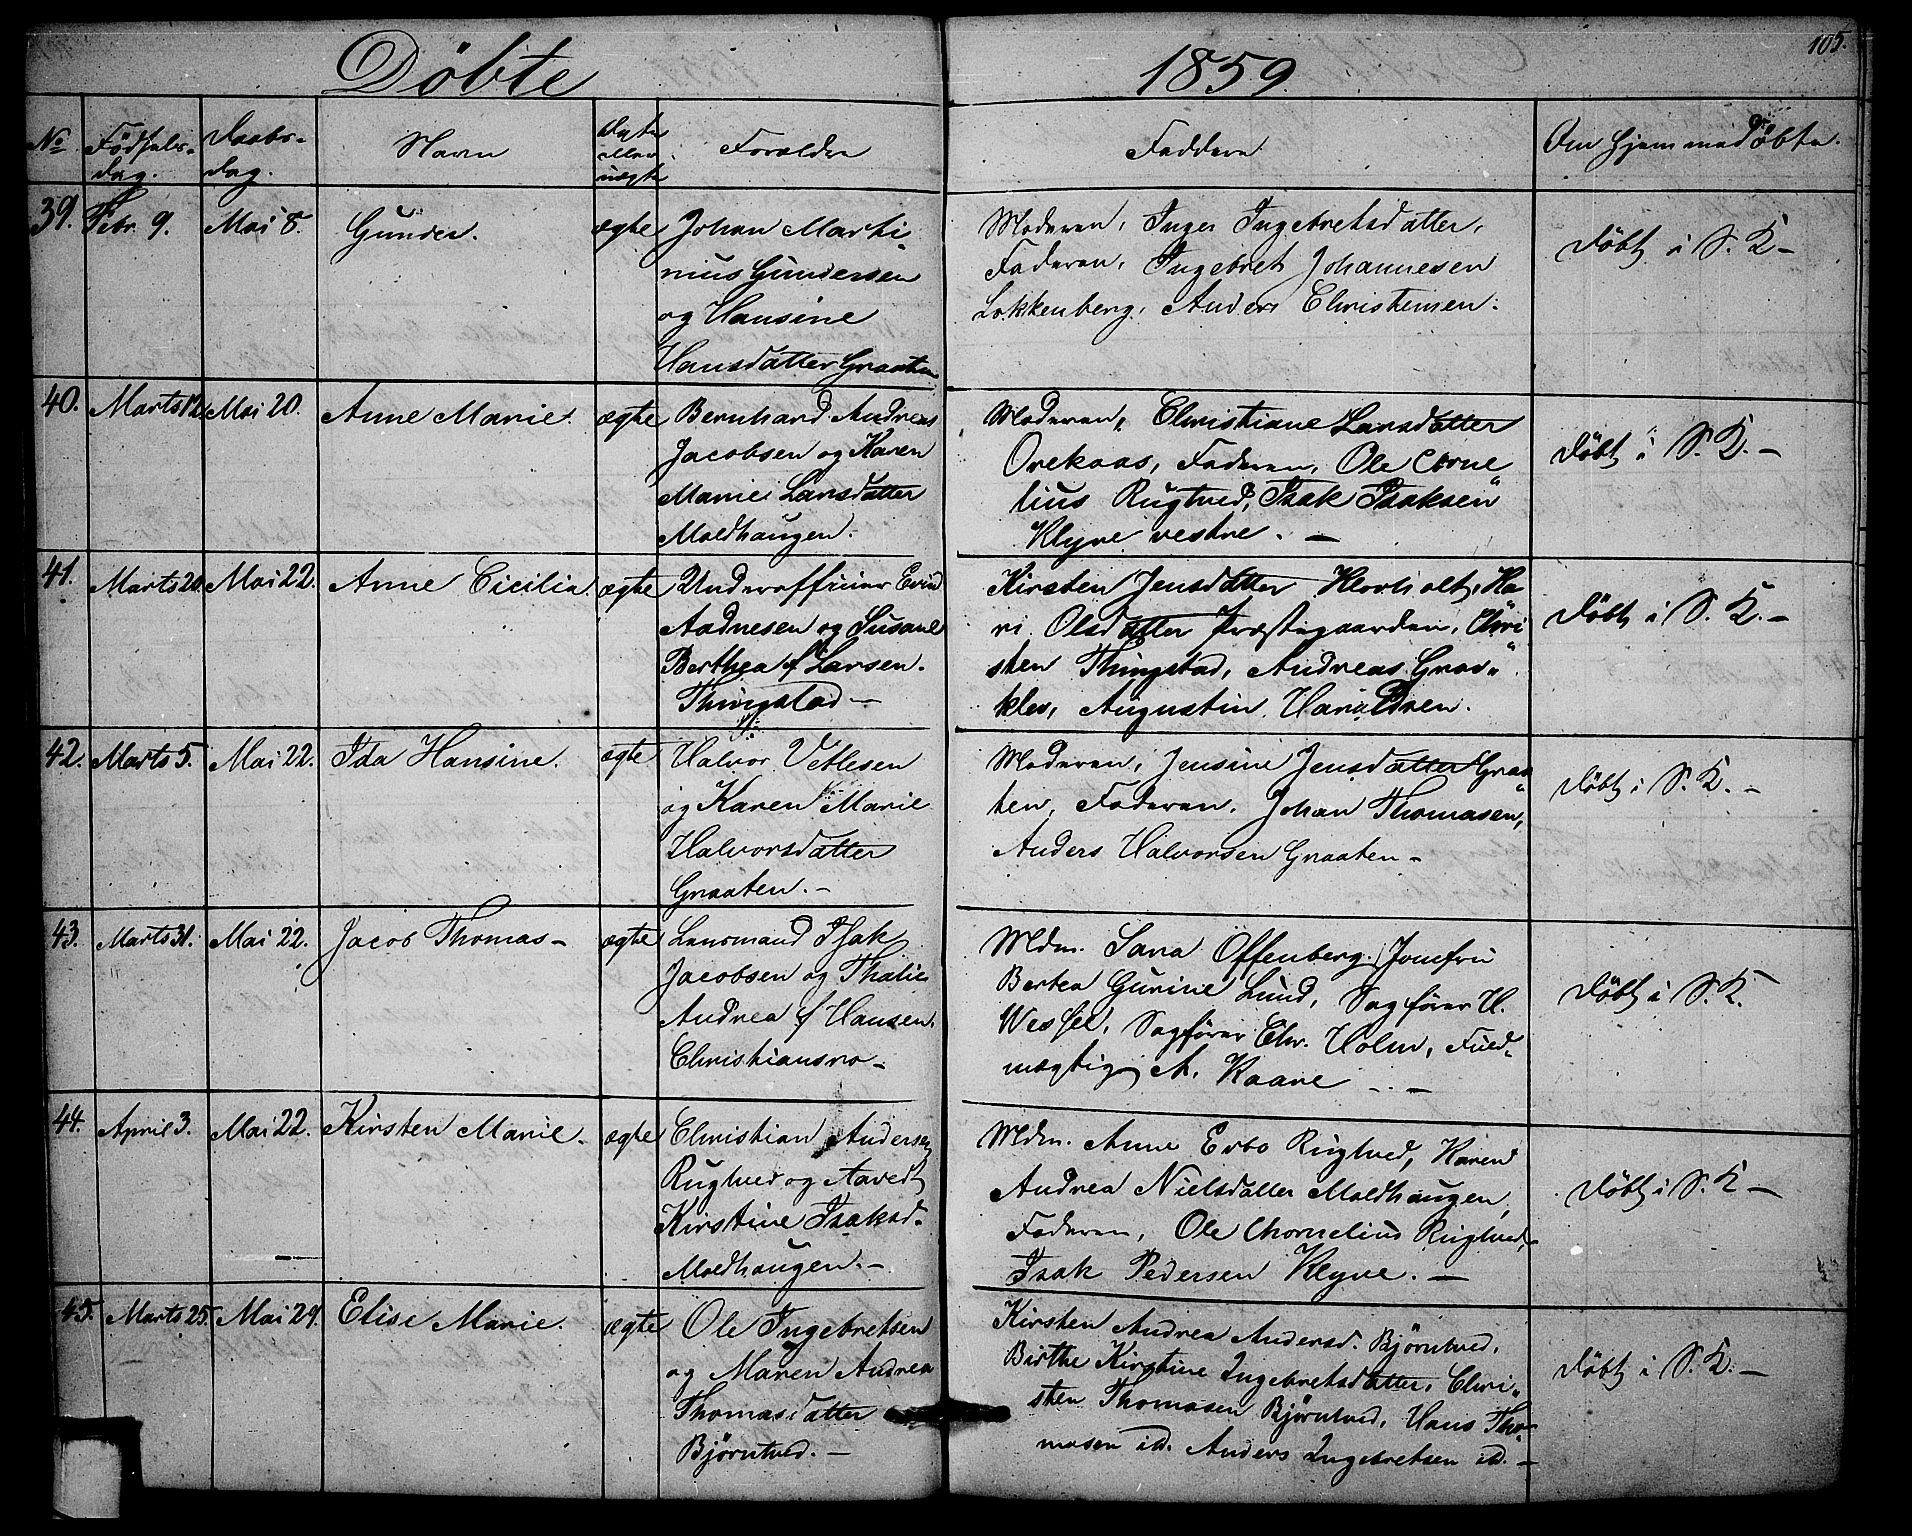 Döbte 1859. 105.
No Födsels-dag. Daabs-dag. Navn Ægte eller uægte Forældre Faddere Om hjemmedöbte.
39. Febr. 9. Mai 8. Gunder. ægte Johan Marti-
nius Gundersen
og Hansine
Hansdatter Graaten
Moderen, Inger Ingebretsdatter,
Faderen, Ingebret Johannesen
Lokkenberg, Anders Christensen.
Döbt i S. K -
40. Marts 12. Mai 20. Anne Marie. ægte Bernhard Andreas
Jacobsen og Karen
Marie Larsdatter
Moldhaugen.
Moderen, Christiane Larsdatter
Orekaas, Faderen, Ole Corne
lius Rugtved, Isak Isaksen
Klyve vestre. -
Döbt i S. K. -
41. Marts 20. Mai 22. Anne Cicilia. ægte Underofficier Evind
Aadnesen og Susane
Berthea f Larsen.
Thingstad -
Kirsten Jensdatter Hovholt, Ka
ri Olsdatter Præstegaarden, Chri
sten Thingstad, Andreas Grav"
klev, Augustin Haraldsen.
Döbt i S. K. -
42. Marts 5. Mai 22. Ida Hansine. ægte Halvor Vetlesen
og Karen Marie
Halvorsdatter
Graaten. -
Moderen, Jensine Jensdatter Graa"
ten, Faderen, Johan Thomasen,
Anders Halvorsen Graaten -
Döbt i S. K. -
43. Marts 31. Mai 22. Jacob Thomas - ægte Lensmand Isak
Jacobsen og Thalie
Andrea f Hansen.
Christiansro -
Mdm. Sara Offenberg, Jomfru
Bertea Gurine Lund, Sagförer H.
Wessel, Sagförer Chr. Holm, Fuld-
mægtig A. Kaare - -
Döbt i S. K.
44. April 3. Mai 22. Kirsten Marie. ægte Christian Andersen
Rugtved og Aavedt
Kirstine Isaksd.
Moldhaugen. -
Mdm. Anne Erbo Rugtved, Karen
Andrea Nielsdatter Moldhaugen,
Faderen, Ole Chornelius Rugtved,
Isak Pedersen Klyve. -
Döbt i S. K -
45. Marts 25. Mai 29. Elise Marie. ægte Ole Ingebretsen
og Maren Andrea
Thomasdatter
Björntved. -
Kirsten Andrea Andersd. Björntved,
Birthe Kirstine Ingebretsdatter, Chri"
sten Thomasen Björntved, Hans Tho"
masen ibd. Anders Ingebretsen ibd. -
Döbt i S. K. -